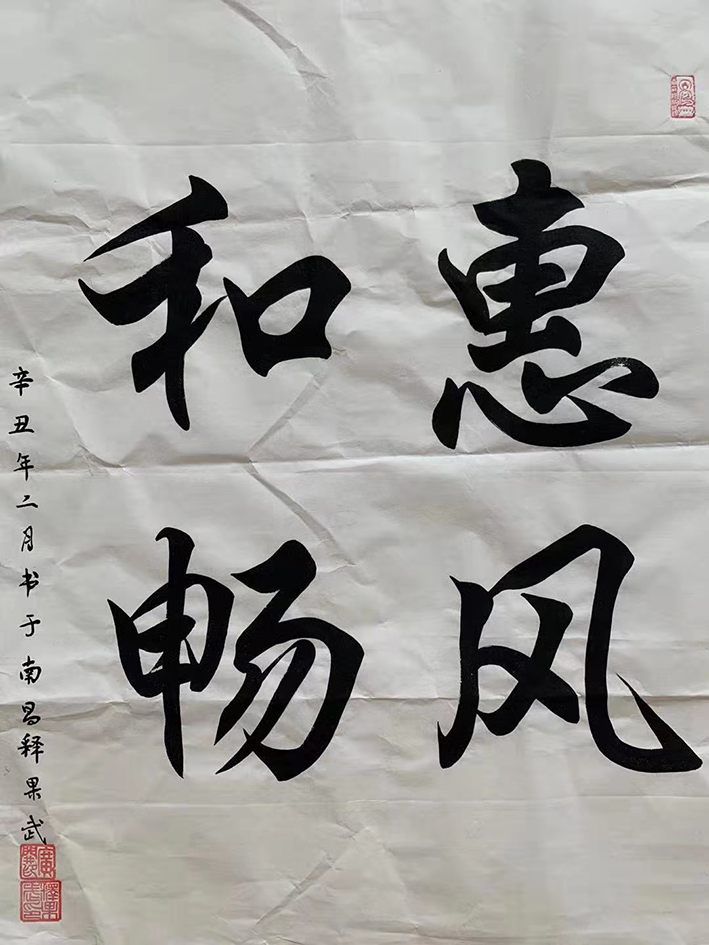 惠风
和畅
辛丑年二月书于南昌释果武